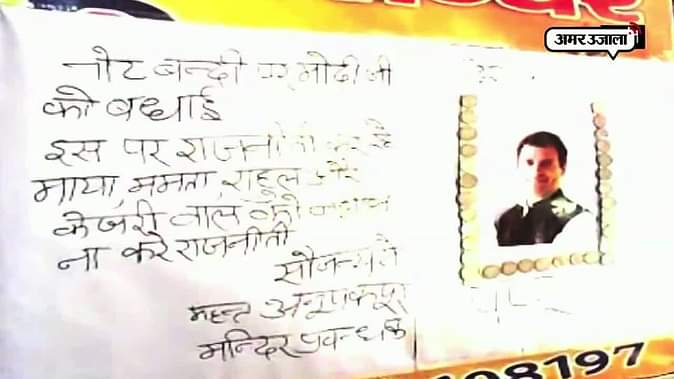 अमर उजाला
नोट बन्दी पर मोदी जी
को बधाई
इस पर राजनीती कर रहे
माया, ममता, राहुल और
केजरी वाल को
ना करे राजनीती
सौजन्य से
महन्त अनूप कपूर
मन्दिर प्रबन्धक
08197